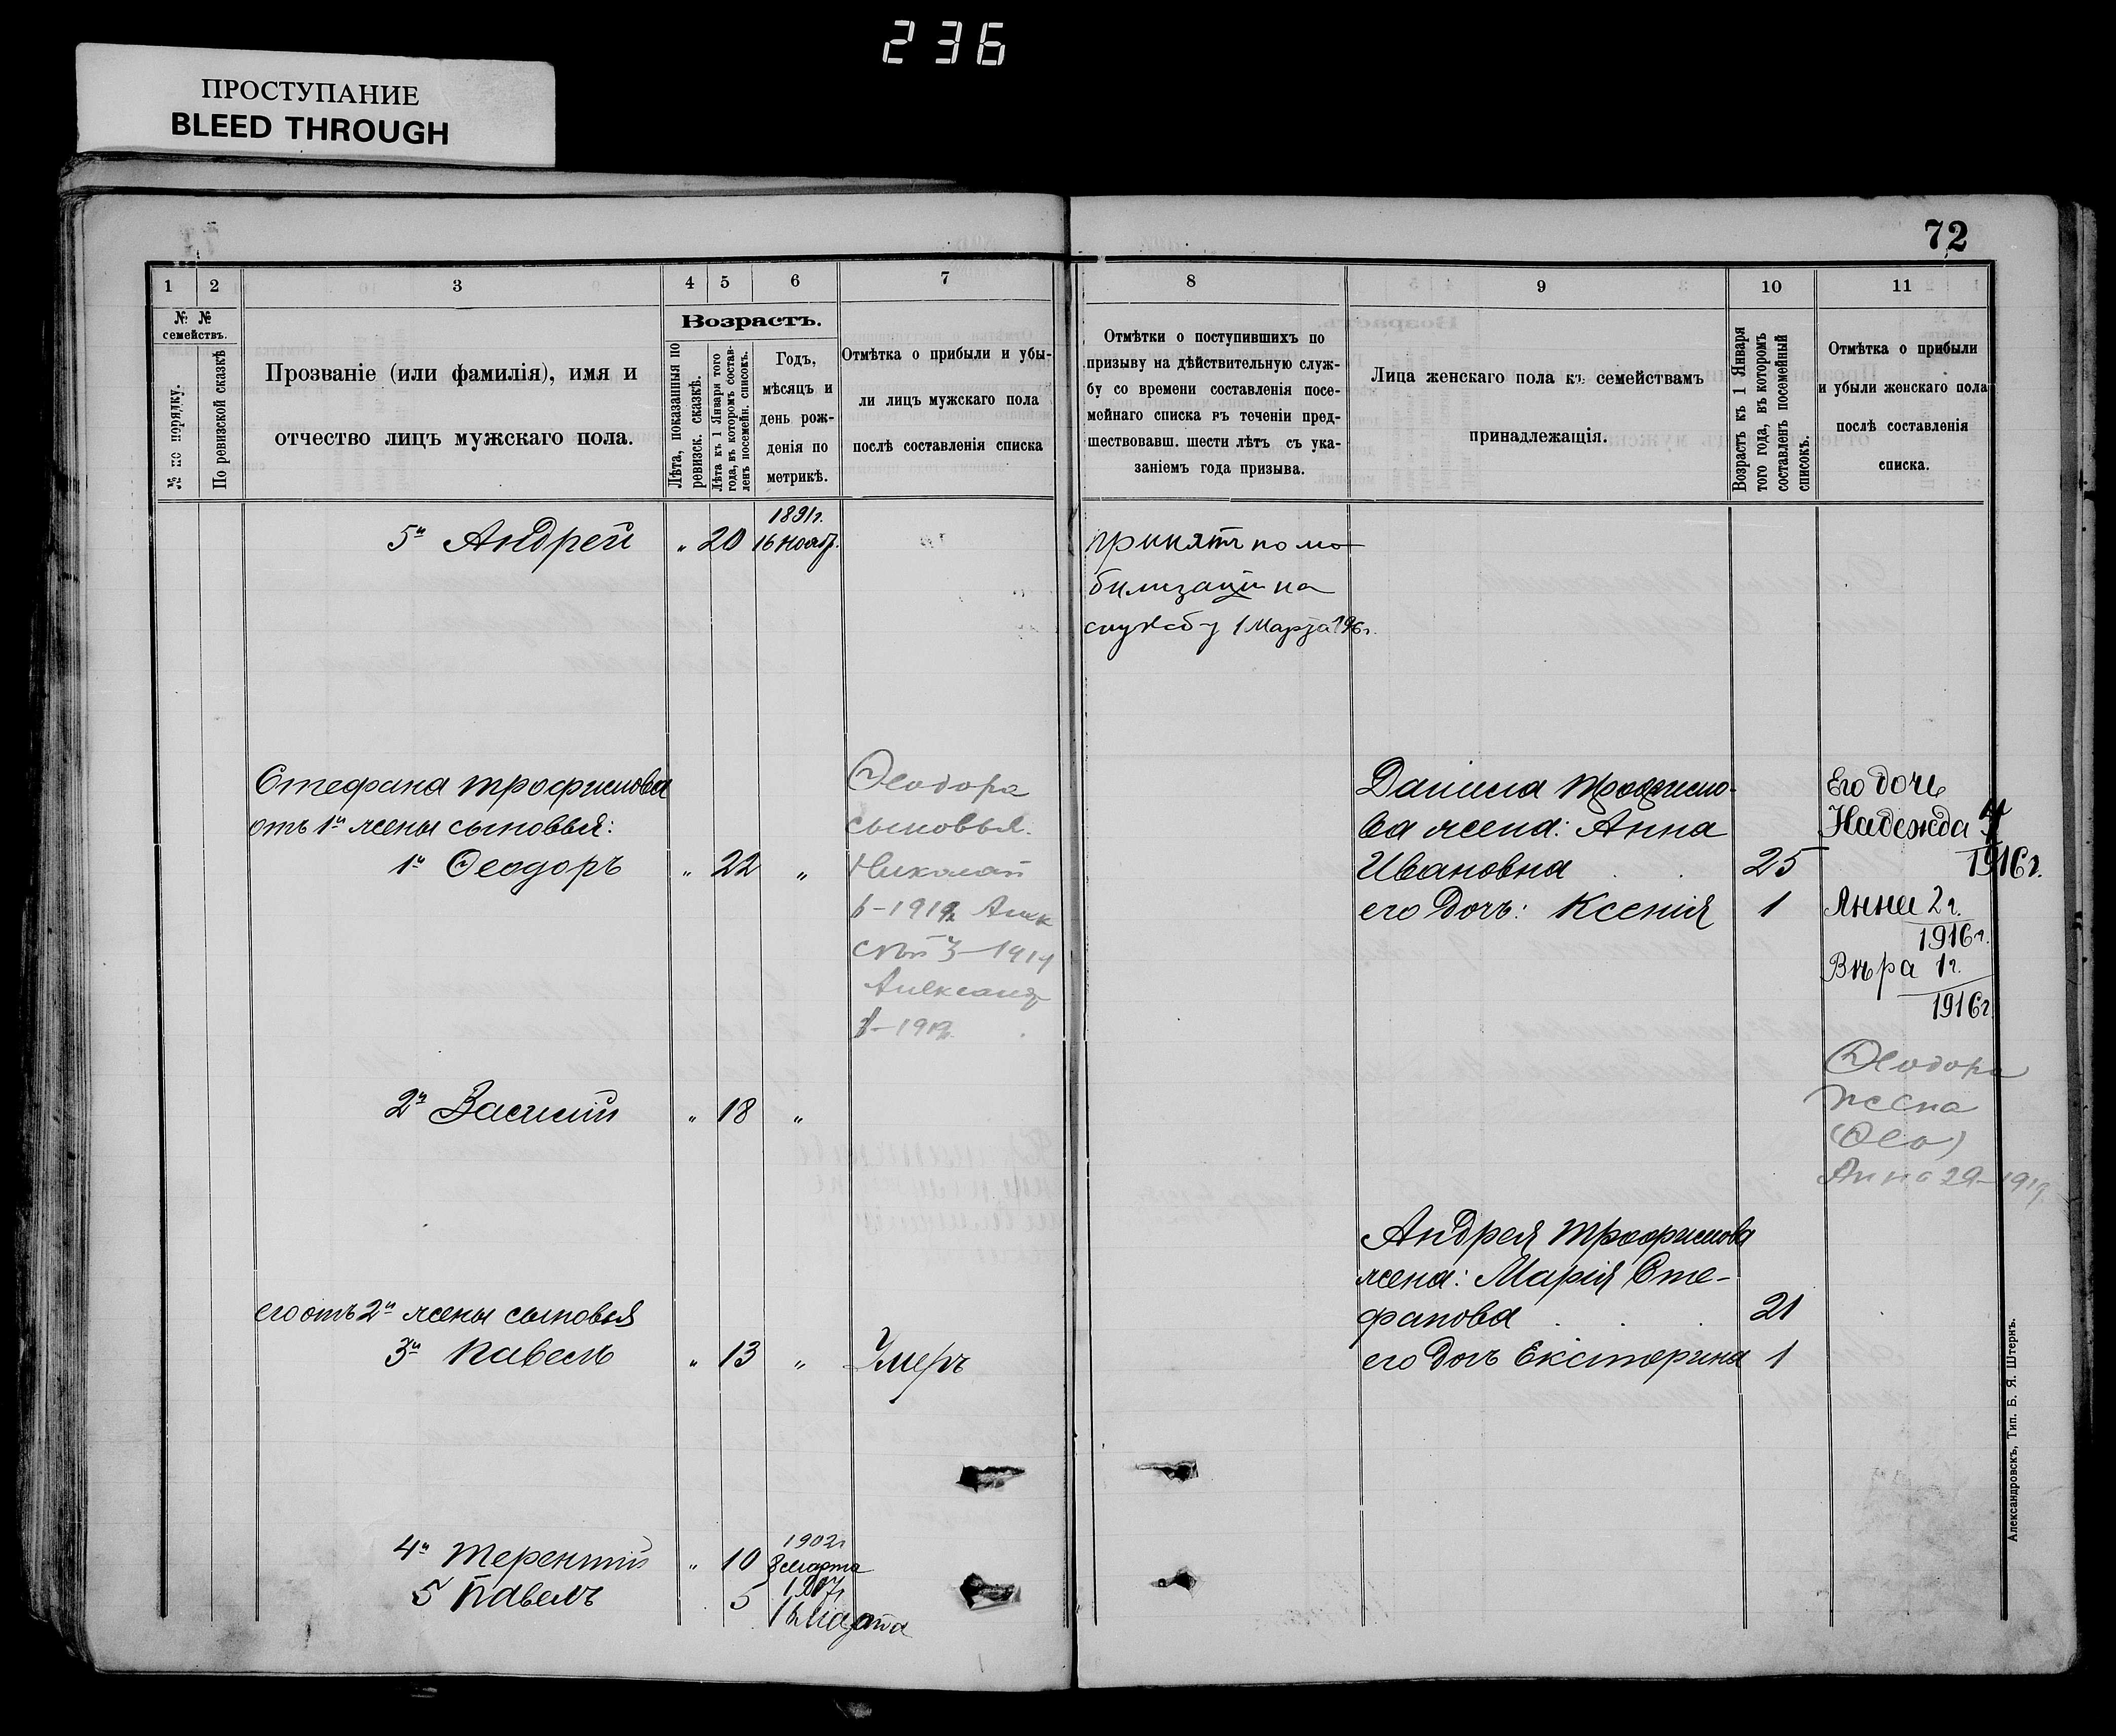 236
ПРОСТУПАНИЕ
BLEED THROUGH
72
1 2 3 4 5 6 7 8 9 10 11
№ №
семействъ.
№ по порядку.
По ревизской сказкѣ
Прозваніе (или фамилія), имя и
отчество лицъ мужскаго пола.
Возрастъ.
Лѣта, показанныя по
ревизск. сказкѣ.
Лѣта къ 1 Января того
года, въ которомъ состав-
ленъ посемейн. списокъ.
Годъ,
мѣсяцъ и
день рож-
денія по
метрикѣ.
Отмѣтка о прибыли и убы-
ли лицъ мужскаго пола
послѣ составленія списка
Отмѣтки о поступившихъ по
призыву на дѣйствительную служ-
бу со времени составленія посе-
мейнаго списка въ теченіи пред-
шествовавш. шести лѣтъ съ ука-
заніемъ года призыва.
Лица женскаго пола къ семействамъ
принадлежащія.
Возрастъ къ 1 Января
того года, въ которомъ
составленъ посемейный
списокъ.
Отмѣтка о прибыли
и убыли женскаго пола
послѣ составленія
списка.
5й Андрей " 20 1891г.
16 Нояб.
принятъ по мо-
билизаціи на
службу 1 Марта
Стефана Трофимова
отъ 1й жены сыновья:
1й Ѳеодоръ " 22 "
Ѳеодора
сыновья:
Николай
Александр
2й Василій " 18 "
его отъ 2й жены сыновья
3й Павелъ " 13 " Умеръ
4й Терентій " 10 1902г
8 марта
5 Павелъ 5
16 Марта
Даніила Трофимо-
ва жена: Анна
Ивановна 25
его дочь: Ксенія 1
Его дочь
Надежда
1916г.
Анна 2г.
1916г.
Вѣра 1г.
1916г
Ѳеодора
жена
Анна 29-1919
Андрея Трофимова
жена: Марія Сте-
фанова 21
его дочь Екатерина 1
Александровскъ, Тип. Б. Я. Штернъ.